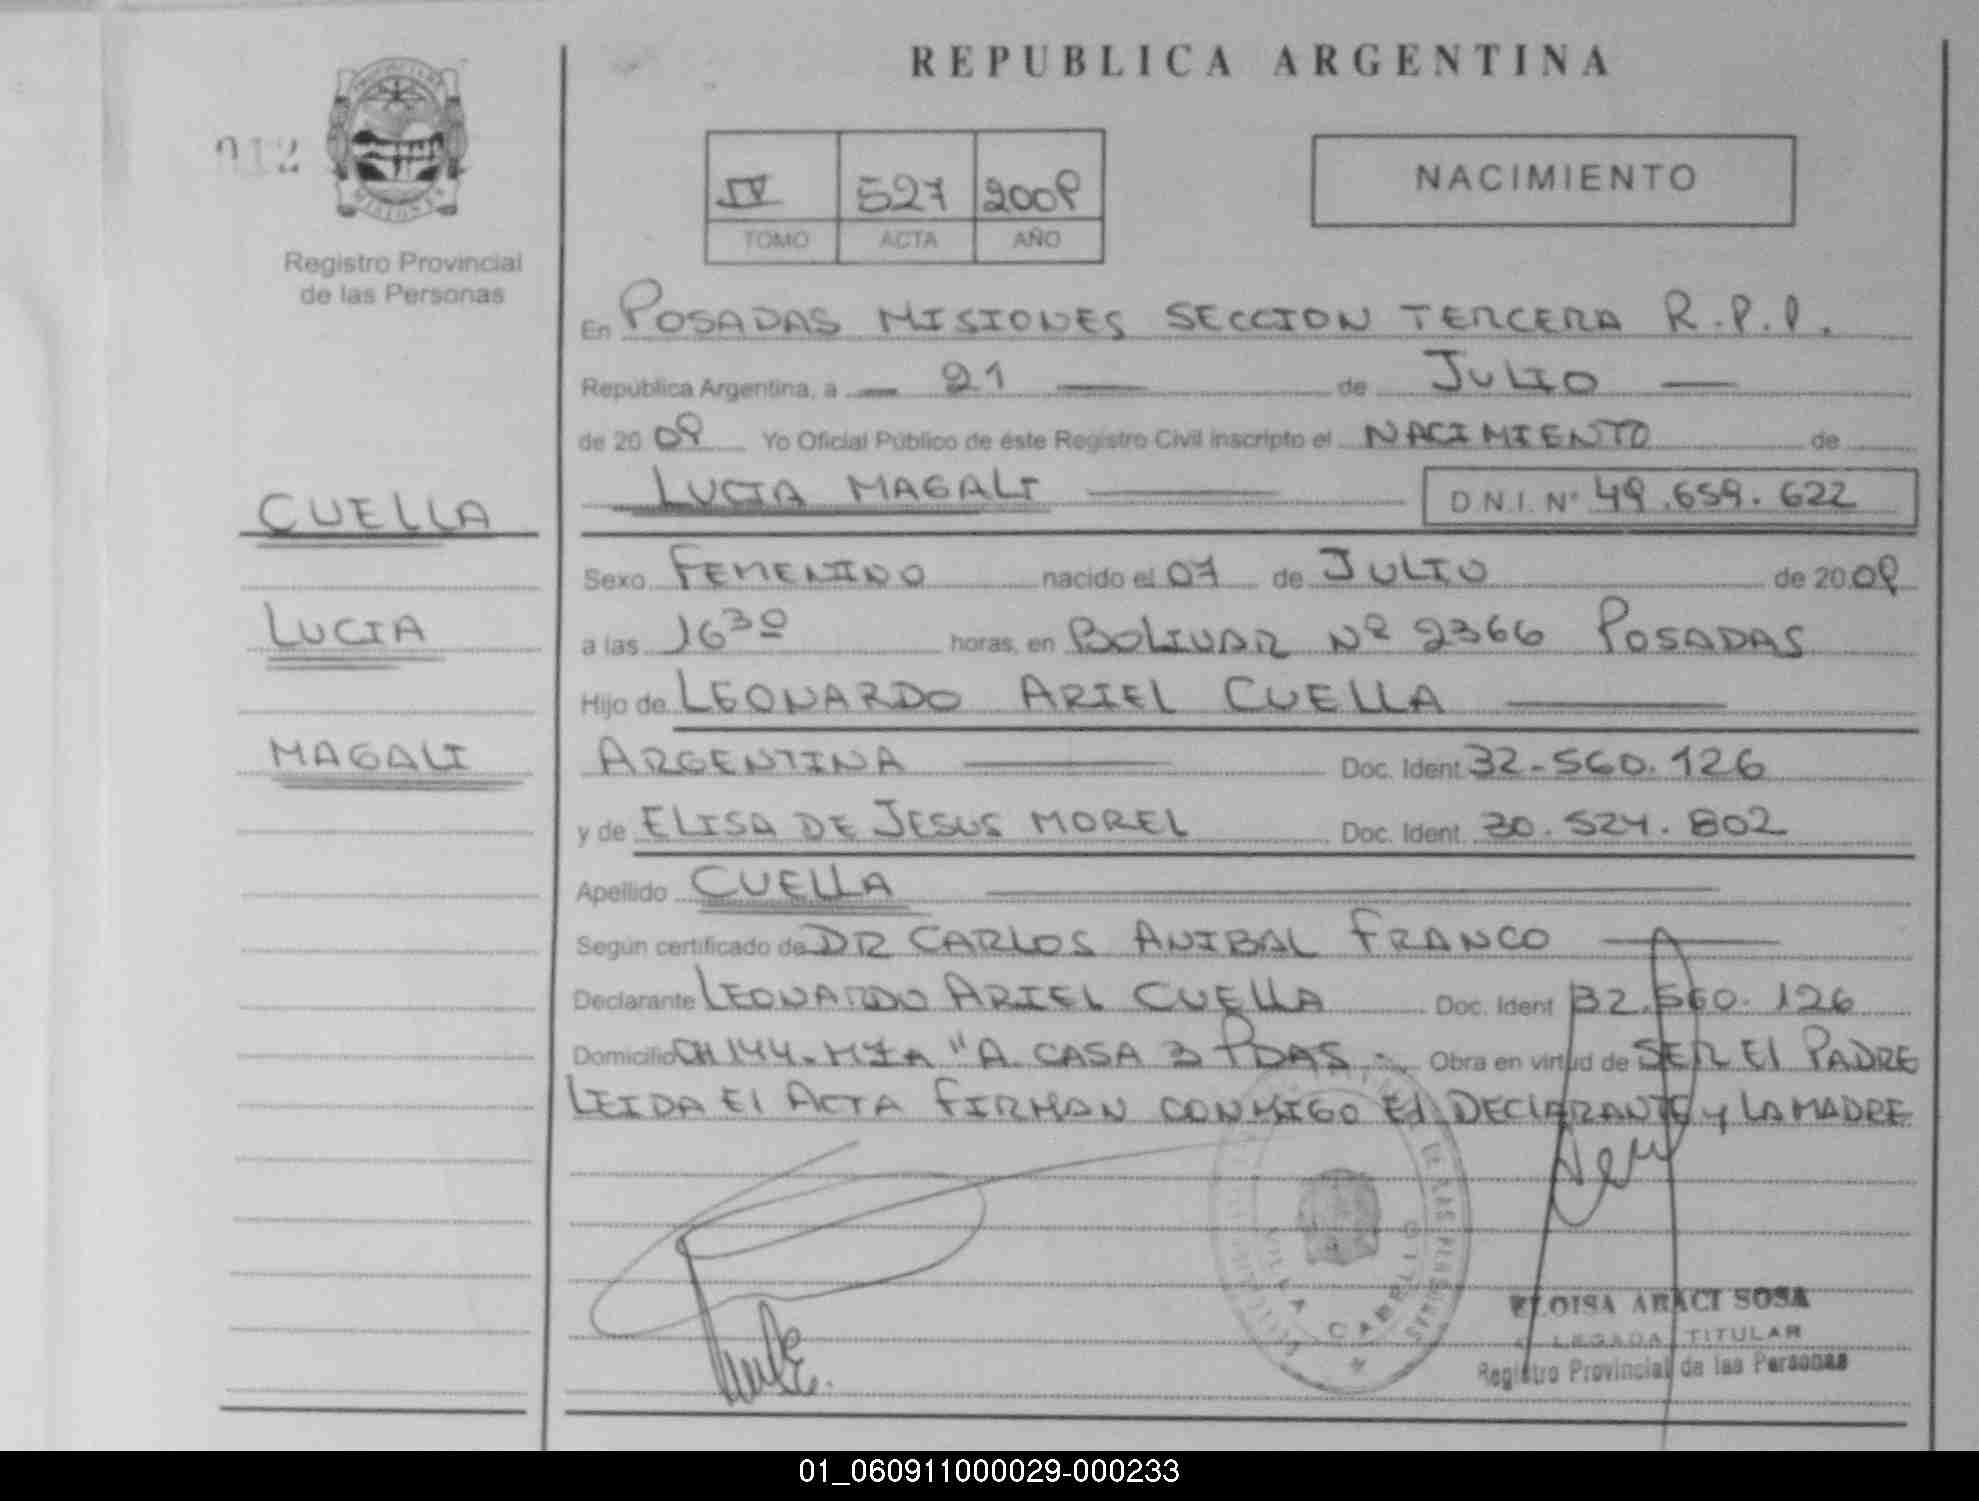 REPUBLICA ARGENTINA
012
IV 527 2009
TOMO ACTA AÑO
NACIMIENTO
Registro Provincial
de las Personas
En POSADAS MISIONES SECCION TERCERA R.P.P.
República Argentina, a 21 de JULIO
de 20 09 Yo Oficial Público de éste Registro Civil inscripto el NACIMIENTO de
LUCIA MAGALI D.N.I. Nº 49.659.622
CUELLA
LUCIA
MAGALI
Sexo FEMENINO nacido el 07 de JULIO de 20 09
a las 16 30 horas, en BOLIVAR Nº 2366 POSADAS
Hijo de LEONARDO ARIEL CUELLA
ARGENTINA Doc. Ident. 32-560.126
y de ELISA DE JESUS MOREL Doc. Ident. 30.524.802
Apellido CUELLA
Según certificado de DR CARLOS ANIBAL FRANCO
Declarante LEONARDO ARIEL CUELLA Doc. Ident 32.560.126
Domicilio CH 144. MZA "A CASA 3 PDAS. Obra en virtud de SER El PADRE
LEIDA El ACTA FIRMAN CONMIGO El DECLARANTE y LA MADRE
VILLA CABELLO
ELOISA ARACI SOSA
LEGADA TITULAR
Registro Provincial de las Personas
01_060911000029-000233